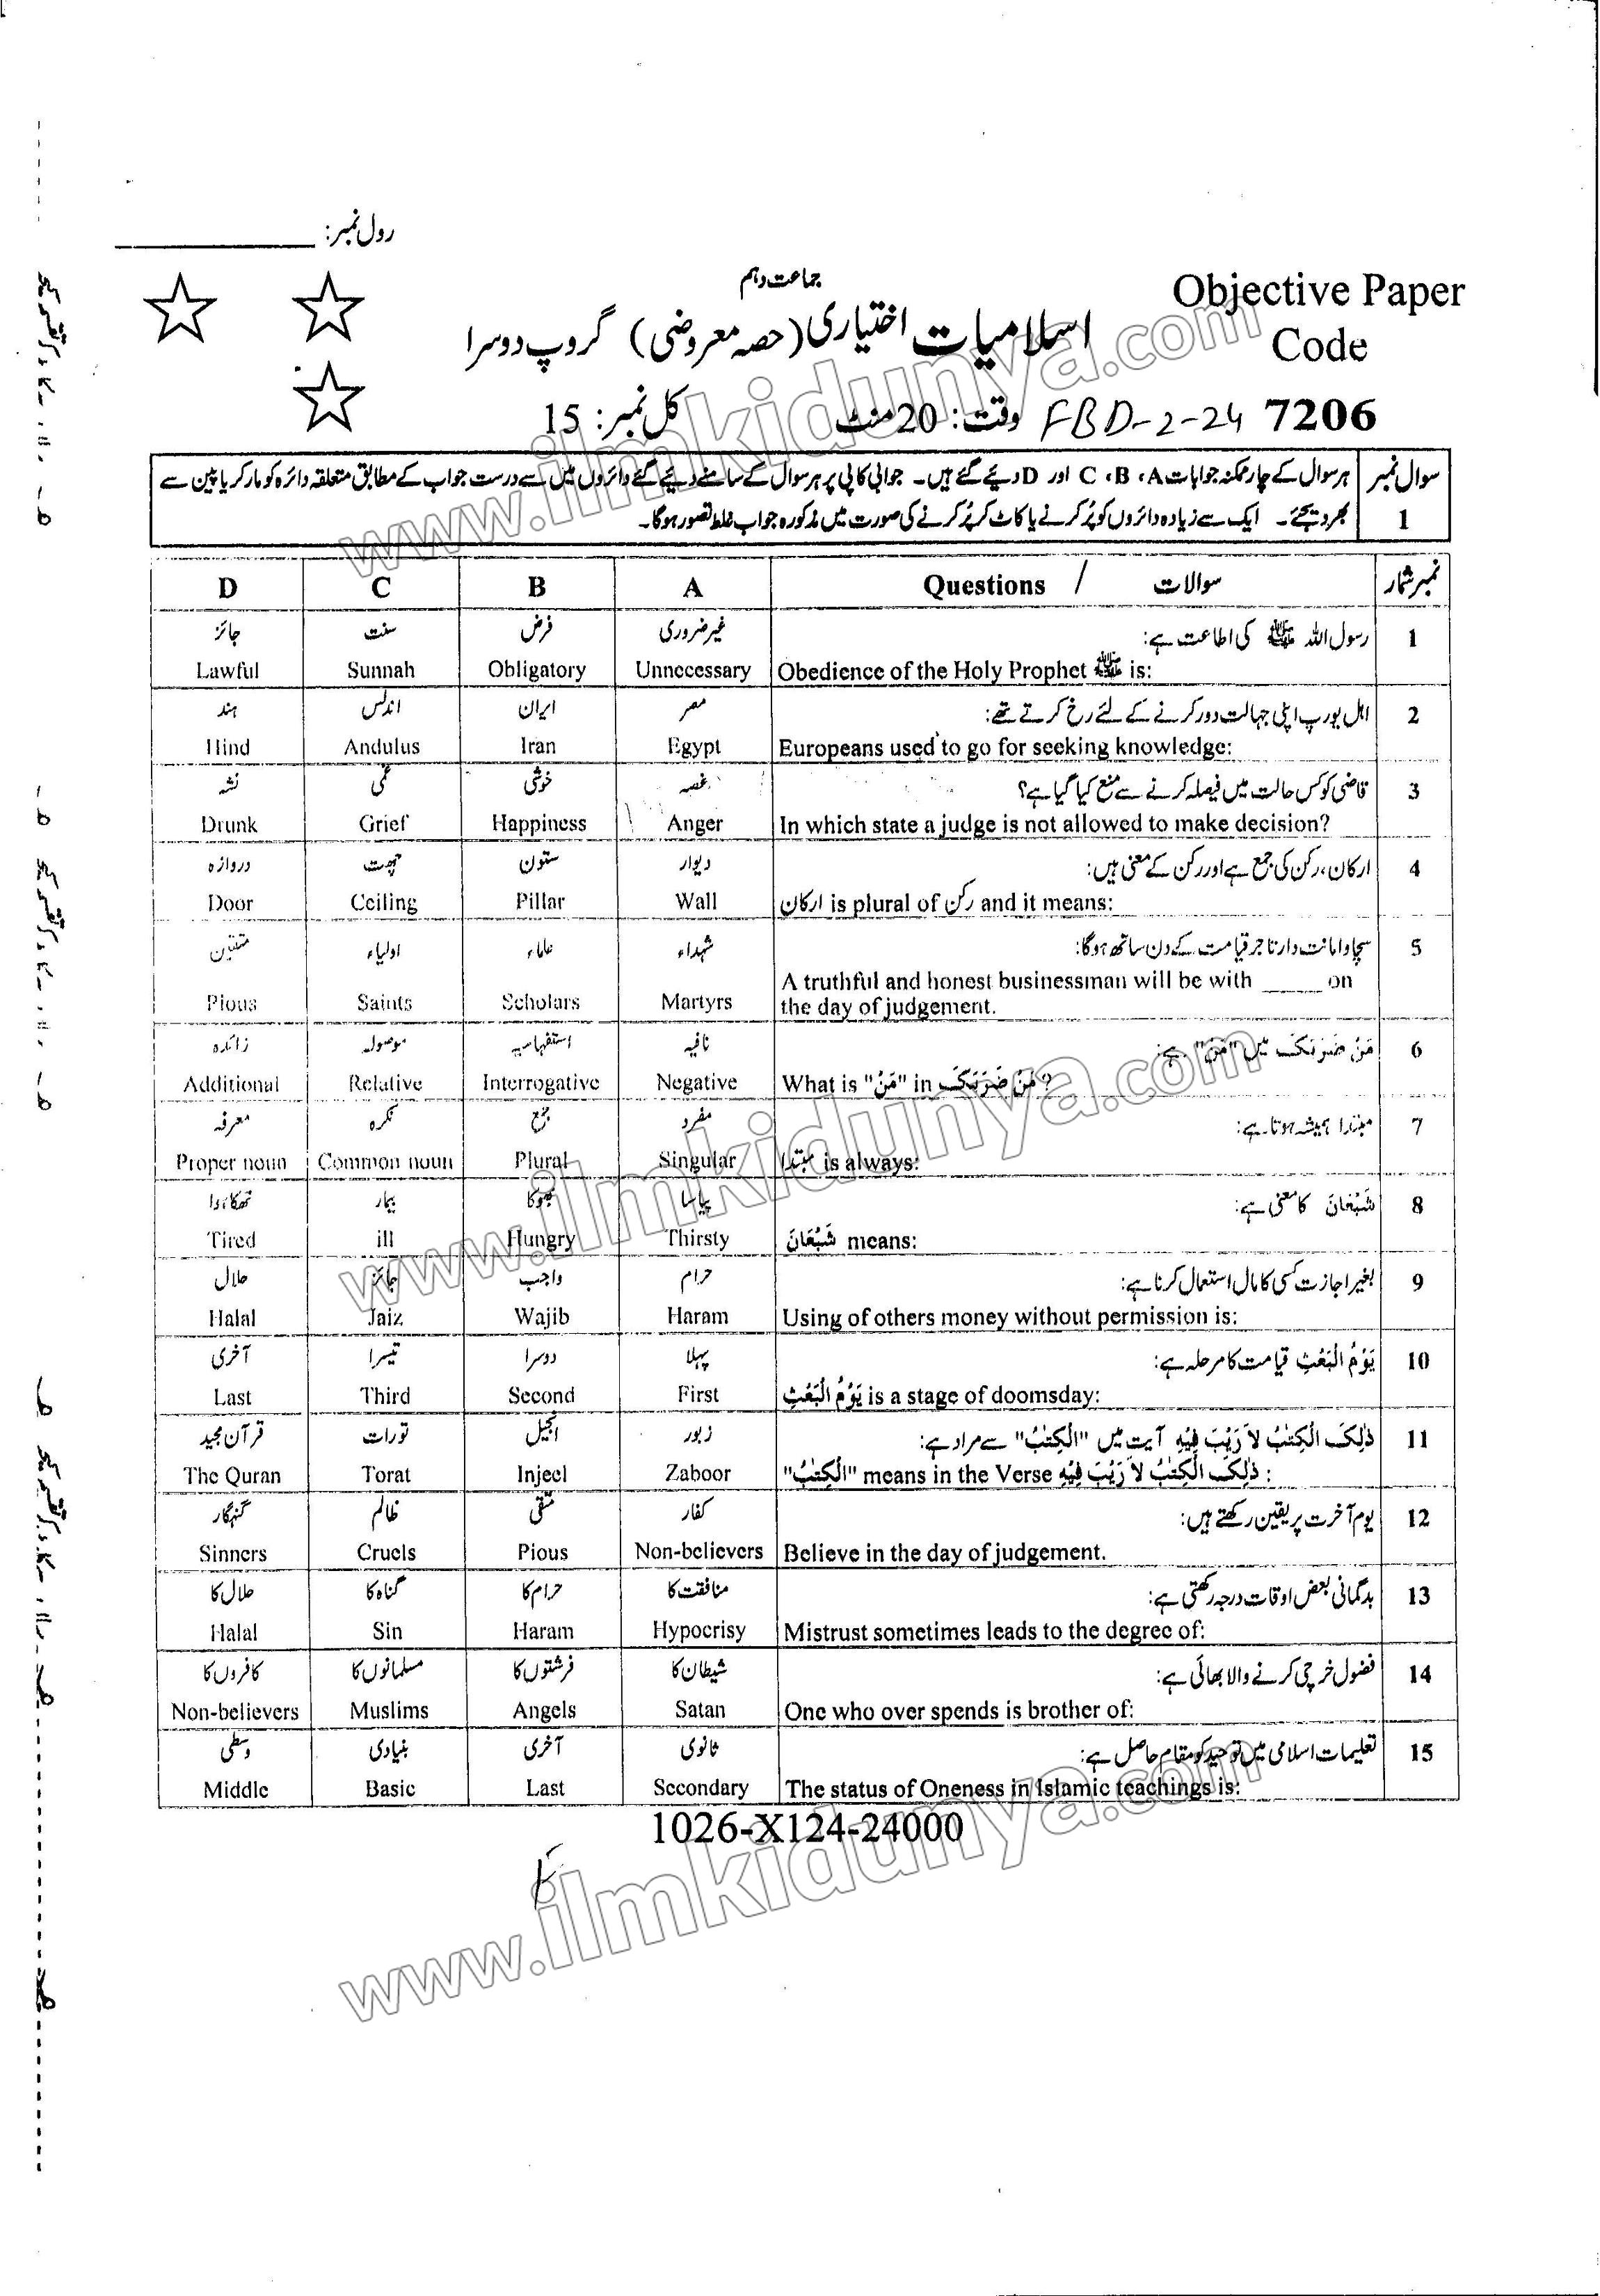 رول نمبر: ____________
جماعت دہم
Objective Paper
اسلامیات اختیاری (حصہ معروضی) گروپ دوسرا
Code
7206 FBD-2-24 وقت: 20 منٹ کل نمبر: 15
سوال نمبر 1
ہر سوال کے چار ممکنہ جوابات A، B، C اور D دیئے گئے ہیں۔ جوابی کاپی پر ہر سوال کے سامنے دیئے گئے دائروں میں سے درست جواب کے مطابق متعلقہ دائرہ کو مارکر یا پین سے
بھر دیجئے۔ ایک سے زیادہ دائروں کو پُر کرنے یا کاٹ کر پُر کرنے کی صورت میں مذکورہ جواب غلط تصور ہوگا۔
نمبر شمار سوالات / Questions A B C D
1 رسول اللہ ﷺ کی اطاعت ہے: غیر ضروری فرض سنت جائز
Obedience of the Holy Prophet ﷺ is: Unnecessary Obligatory Sunnah Lawful
2 اہل یورپ اپنی جہالت دور کرنے کے لئے رخ کرتے تھے: مصر ایران اندلس ہند
Europeans used to go for seeking knowledge: Egypt Iran Andulus Hind
3 قاضی کو کس حالت میں فیصلہ کرنے سے منع کیا گیا ہے؟ غصہ خوشی غمی نشہ
In which state a judge is not allowed to make decision? Anger Happiness Grief Drunk
4 ارکان، رکن کی جمع ہے اور رکن کے معنی ہیں: دیوار ستون چھت دروازہ
ارکان is plural of رکن and it means: Wall Pillar Ceiling Door
5 سچا و امانت دار تاجر قیامت کے دن ساتھ ہوگا: شہداء علماء اولیاء متقین
A truthful and honest businessman will be with _____ on
the day of judgement. Martyrs Scholars Saints Pious
6 مَنْ ضَرَبَكَ میں "مَنْ" ہے: نافیہ استفہامیہ موصولہ زائدہ
What is "مَنْ" in مَنْ ضَرَبَكَ? Negative Interrogative Relative Additional
7 مبتدا ہمیشہ ہوتا ہے: مفرد جمع نکرہ معرفہ
مبتدا is always: Singular Plural Common noun Proper noun
8 شَبْعَانَ کا معنی ہے: پیاسا بھوکا بیمار تھکا ہوا
شَبْعَانَ means: Thirsty Hungry ill Tired
9 بغیر اجازت کسی کا مال استعمال کرنا ہے: حرام واجب جائز حلال
Using of others money without permission is: Haram Wajib Jaiz Halal
10 يَوْمُ الْبَعْثِ قیامت کا مرحلہ ہے: پہلا دوسرا تیسرا آخری
يَوْمُ الْبَعْثِ is a stage of doomsday: First Second Third Last
11 ذٰلِكَ الْكِتٰبُ لَا رَيْبَ فِيْهِ آیت میں "الْكِتٰبُ" سے مراد ہے: زبور انجیل تورات قرآن مجید
"الْكِتٰبُ" means in the Verse ذٰلِكَ الْكِتٰبُ لَا رَيْبَ فِيْهِ : Zaboor Injeel Torat The Quran
12 یوم آخرت پر یقین رکھتے ہیں: کفار متقی ظالم گنہگار
Believe in the day of judgement. Non-believers Pious Cruels Sinners
13 بدگمانی بعض اوقات درجہ رکھتی ہے: منافقت کا حرام کا گناہ کا حلال کا
Mistrust sometimes leads to the degree of: Hypocrisy Haram Sin Halal
14 فضول خرچی کرنے والا بھائی ہے: شیطان کا فرشتوں کا مسلمانوں کا کافروں کا
One who over spends is brother of: Satan Angels Muslims Non-believers
15 تعلیمات اسلامی میں توحید کو مقام حاصل ہے: ثانوی آخری بنیادی وسطی
The status of Oneness in Islamic teachings is: Secondary Last Basic Middle
1026-X124-24000
www.ilmkidunya.com
www.ilmkidunya.com
www.ilmkidunya.com